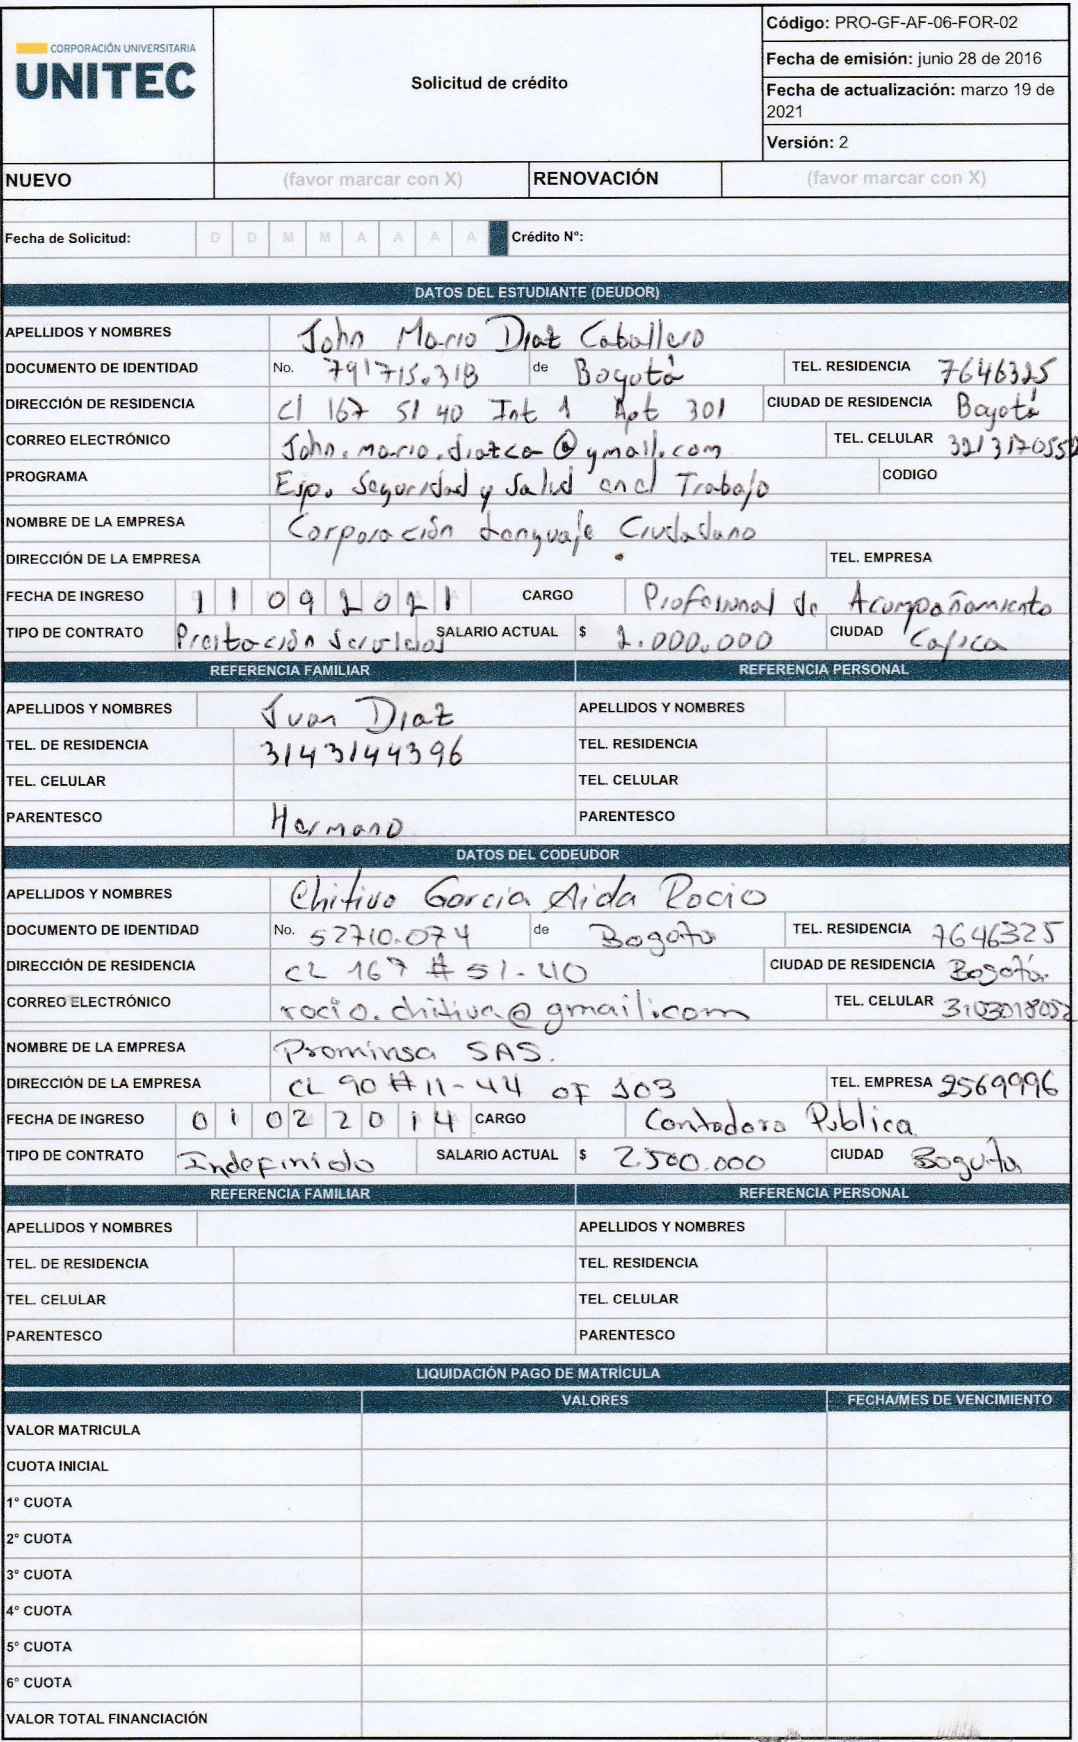 CORPORACIÓN UNIVERSITARIA
UNITEC
Solicitud de crédito
Código: PRO-GF-AF-06-FOR-02
Fecha de emisión: junio 28 de 2016
Fecha de actualización: marzo 19 de
2021
Versión: 2
NUEVO (favor marcar con X) RENOVACIÓN (favor marcar con X)
Fecha de Solicitud: D D M M A A A A Crédito N°:
DATOS DEL ESTUDIANTE (DEUDOR)
APELLIDOS Y NOMBRES John Mario Diaz Caballero
DOCUMENTO DE IDENTIDAD No. de Bogotá TEL. RESIDENCIA 7646325
DIRECCIÓN DE RESIDENCIA Cl 167 51 40 Int 1 Apt 301 CIUDAD DE RESIDENCIA Bogotá
CORREO ELECTRÓNICO John.mario.diazca@gmail.com TEL. CELULAR
PROGRAMA Esp. Seguridad y Salud en el Trabajo CODIGO
NOMBRE DE LA EMPRESA Corporación Lenguaje Ciudadano
DIRECCIÓN DE LA EMPRESA TEL. EMPRESA
FECHA DE INGRESO 1 1 0 9 2 0 2 1 CARGO Profesional de Acompañamiento
TIPO DE CONTRATO Prestación Servicios SALARIO ACTUAL $ 2.000.000 CIUDAD Cajica
REFERENCIA FAMILIAR REFERENCIA PERSONAL
APELLIDOS Y NOMBRES Juan Diaz APELLIDOS Y NOMBRES
TEL. DE RESIDENCIA 3143144396 TEL. RESIDENCIA
TEL. CELULAR TEL. CELULAR
PARENTESCO Hermano PARENTESCO
DATOS DEL CODEUDOR
APELLIDOS Y NOMBRES Chitiva Garcia Aida Rocio
DOCUMENTO DE IDENTIDAD No. 52710.074 de Bogota TEL. RESIDENCIA 7646325
DIRECCIÓN DE RESIDENCIA CL 167 # 51-40 CIUDAD DE RESIDENCIA Bogotá.
CORREO ELECTRÓNICO rocio.chitiva@gmail.com TEL. CELULAR 3103018052
NOMBRE DE LA EMPRESA Prominsa SAS.
DIRECCIÓN DE LA EMPRESA CL 90 #11-44 OF 103 TEL. EMPRESA 2569996
FECHA DE INGRESO 0 1 0 2 2 0 1 4 CARGO Contadora Publica
TIPO DE CONTRATO Indefinido SALARIO ACTUAL $ 2.500.000 CIUDAD Bogota
REFERENCIA FAMILIAR REFERENCIA PERSONAL
APELLIDOS Y NOMBRES APELLIDOS Y NOMBRES
TEL. DE RESIDENCIA TEL. RESIDENCIA
TEL. CELULAR TEL. CELULAR
PARENTESCO PARENTESCO
LIQUIDACIÓN PAGO DE MATRÍCULA
VALORES FECHA/MES DE VENCIMIENTO
VALOR MATRICULA
CUOTA INICIAL
1° CUOTA
2° CUOTA
3° CUOTA
4° CUOTA
5° CUOTA
6° CUOTA
VALOR TOTAL FINANCIACIÓN